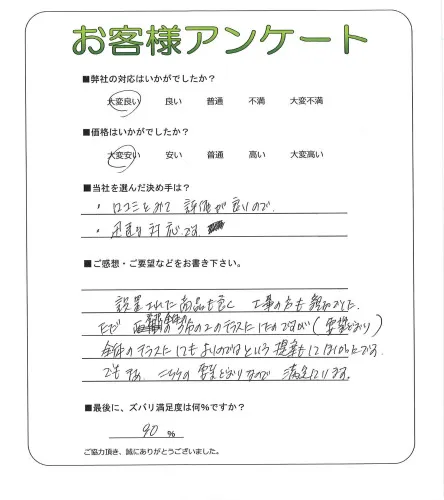 お客様アンケート
■弊社の対応はいかがでしたか?
大変良い 良い 普通 不満 大変不満
■価格はいかがでしたか?
大変安い 安い 普通 高い 大変高い
■当社を選んだ決め手は?
・口コミをみて 評価が良いので、
・迅速な対応です。
■ご感想・ご要望などをお書き下さい。
設置された商品も良く 工事の方も親切でした。
ただ の3分の2のテラスにしたのですが(要望どおり)
全体のテラスにしてもよいのではという提案もしてほしかったです。
でもまあ、こちらの要望どおりなので 満足しています。
■最後に、ズバリ満足度は何%ですか?
90 %
ご協力頂き、誠にありがとうございました。